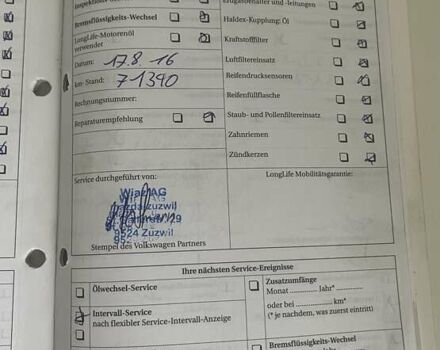 Bremsflüssigkeits-Wechsel
LongLife-Motorenöl
verwendet
Datum: 17.8.16
km-Stand: 71390
Rechnungsnummer:
Reparaturempfehlung
Erdgasbehälter und -leitungen
Haldex-Kupplung: Öl
Kraftstofffilter
Luftfiltereinsatz
Reifendrucksensoren
Reifenfüllflasche
Staub- und Pollenfiltereinsatz
Zahnriemen
Zündkerzen
Service durchgeführt von:
AG
9524 Zuzwil
Stempel des Volkswagen Partners
LongLife Mobilitätsgarantie:
Ihre nächsten Service-Ereignisse
Ölwechsel-Service
Intervall-Service
nach flexibler Service-Intervall-Anzeige
Zusatzumfänge
Monat ............ Jahr*............
oder bei ............ km*
(* je nachdem, was zuerst eintritt)
Bremsflüssigkeits-Wechsel